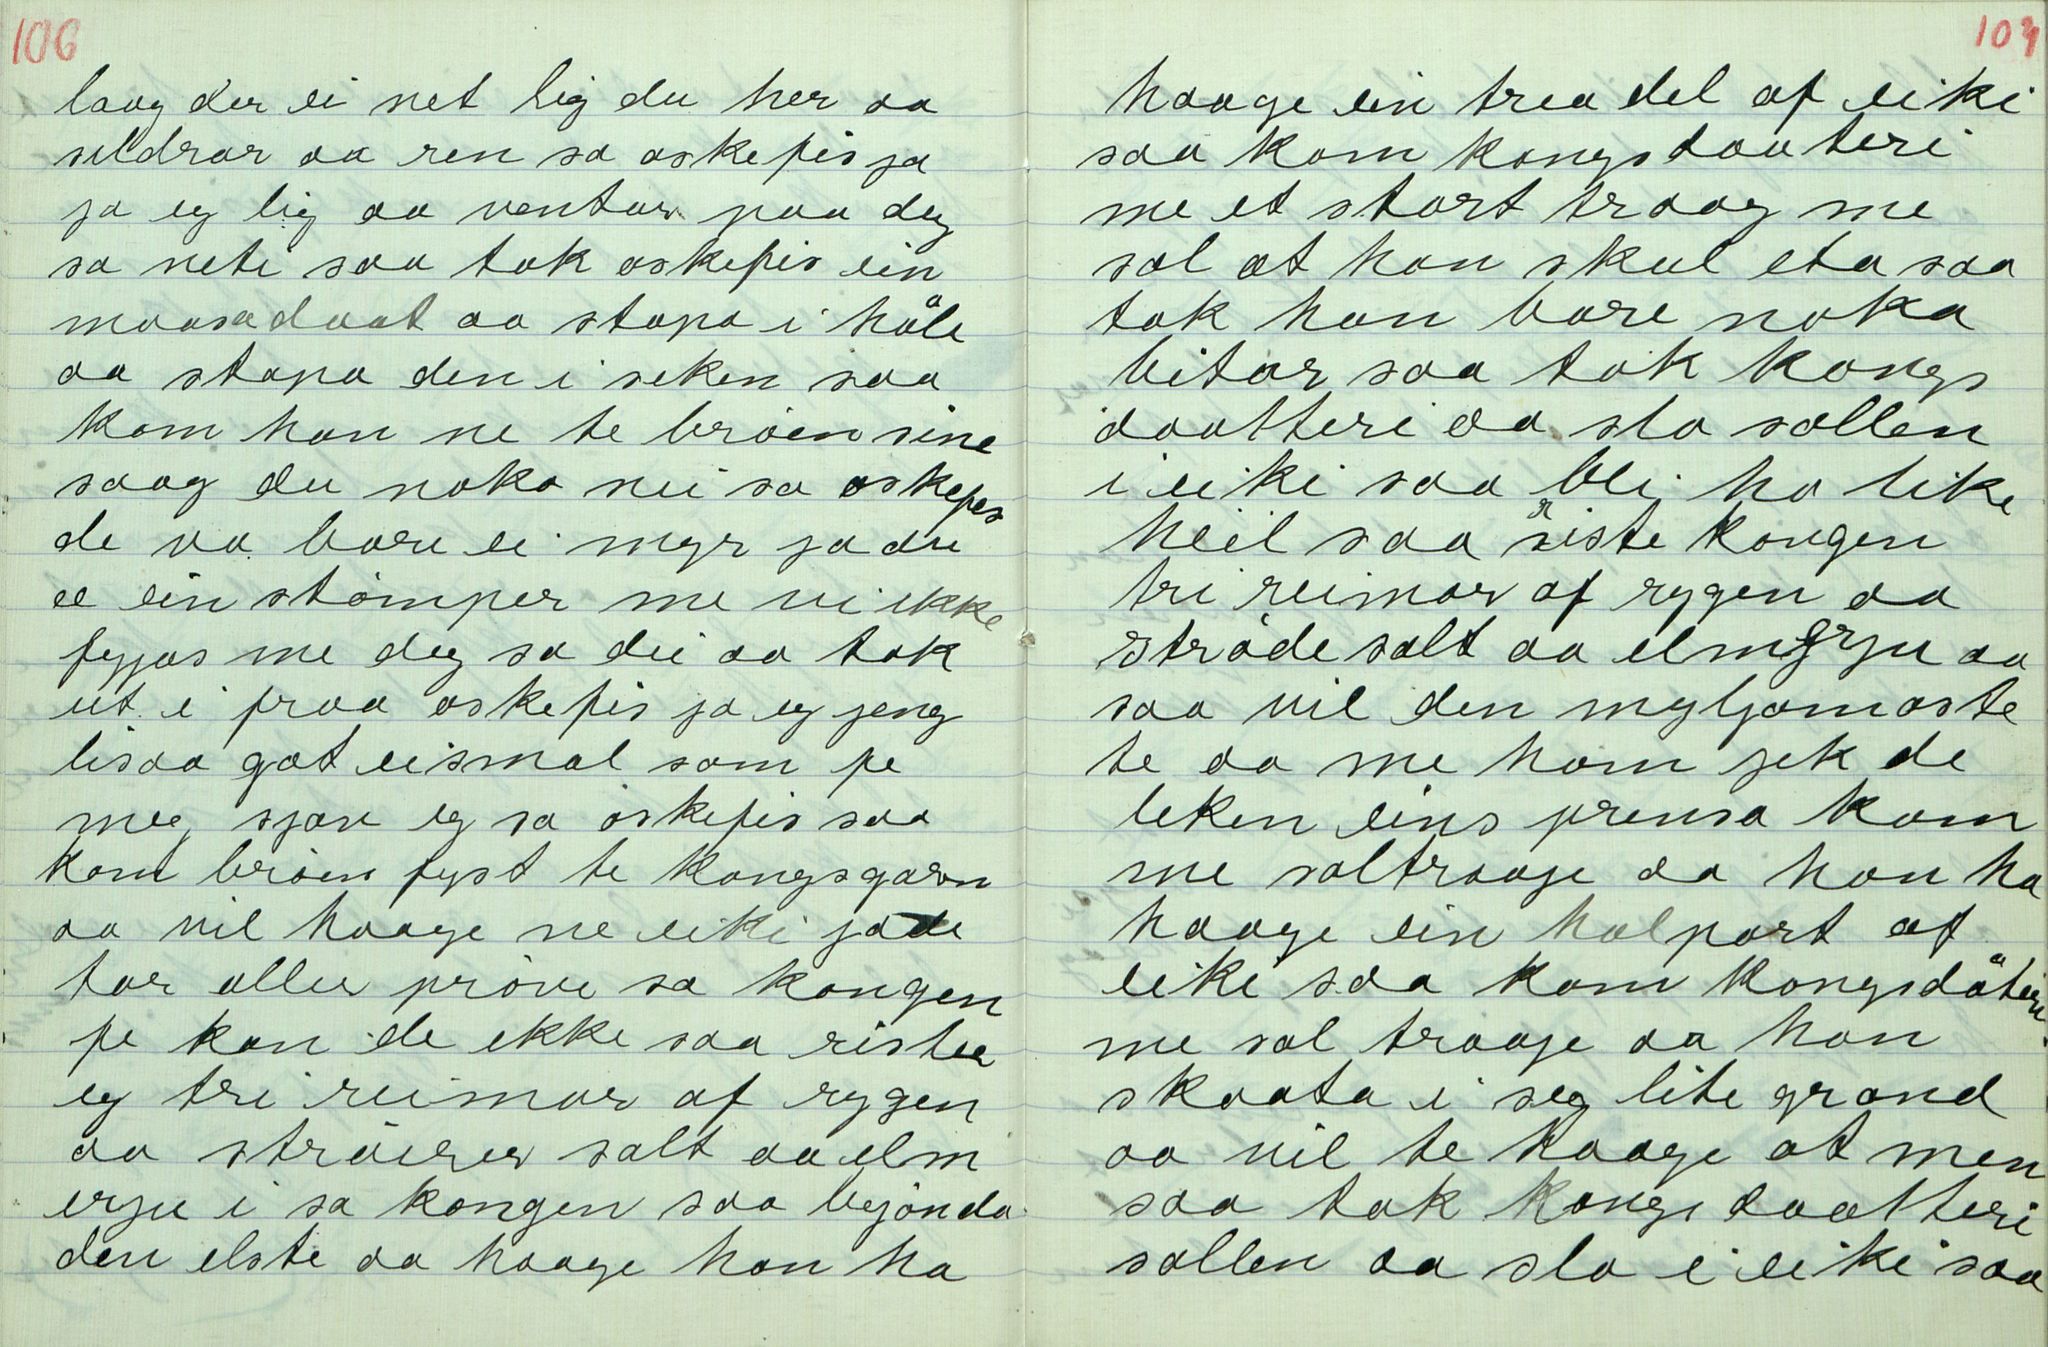 106
laag der ei net lig du her aa
sildrar aa ren sa askepis ja
ja eg lig aa ventar paa deg
sa neti saa tok askepis ein
maasadaat aa stapa i håle
aa stapa den i seken saa
kom han ne te brøen sine
saag du noko nei sa askepis
de va bare ei myr ja du
e ein stomper me vi ikke
fyjas me deg sa dei aa tok
ut i fraa askepis ja eg jeng
lisaa gat eismal som pe
meg sjøu eg sa askepis saa
kom brøen fyst te kongsgarn
aa vil haage ne eiki ja de
tar aller prøve sa kongen
pe kan de ikke saa rister
eg tri reimar af rygen
aa strøirer salt aa elm
erju i sa kongen saa bejønda
den elste aa haage han ha
107
haage ein trea del af eiki
saa kom kongsdaateri
me et stort traag me
sal at han skul eta saa
tok han bare noka
bitar saa tok kongs
daatteri aa sla sallen
i eiki saa blij ha like
heil saa riste kongen
tri reimar af rygen aa
strøde salt aa elmerju aa
saa vil den myljomaste
te aa me hom jek de
leken eins prensa kom
me saltraage aa han ha
haage ein halpart af
eiki saa kom kongsdåteri
me sal traage aa han
skaata i seg lite grand
aa vil te haage at men
saa tok kongs daatteri
sallen aa sla i eiki saa